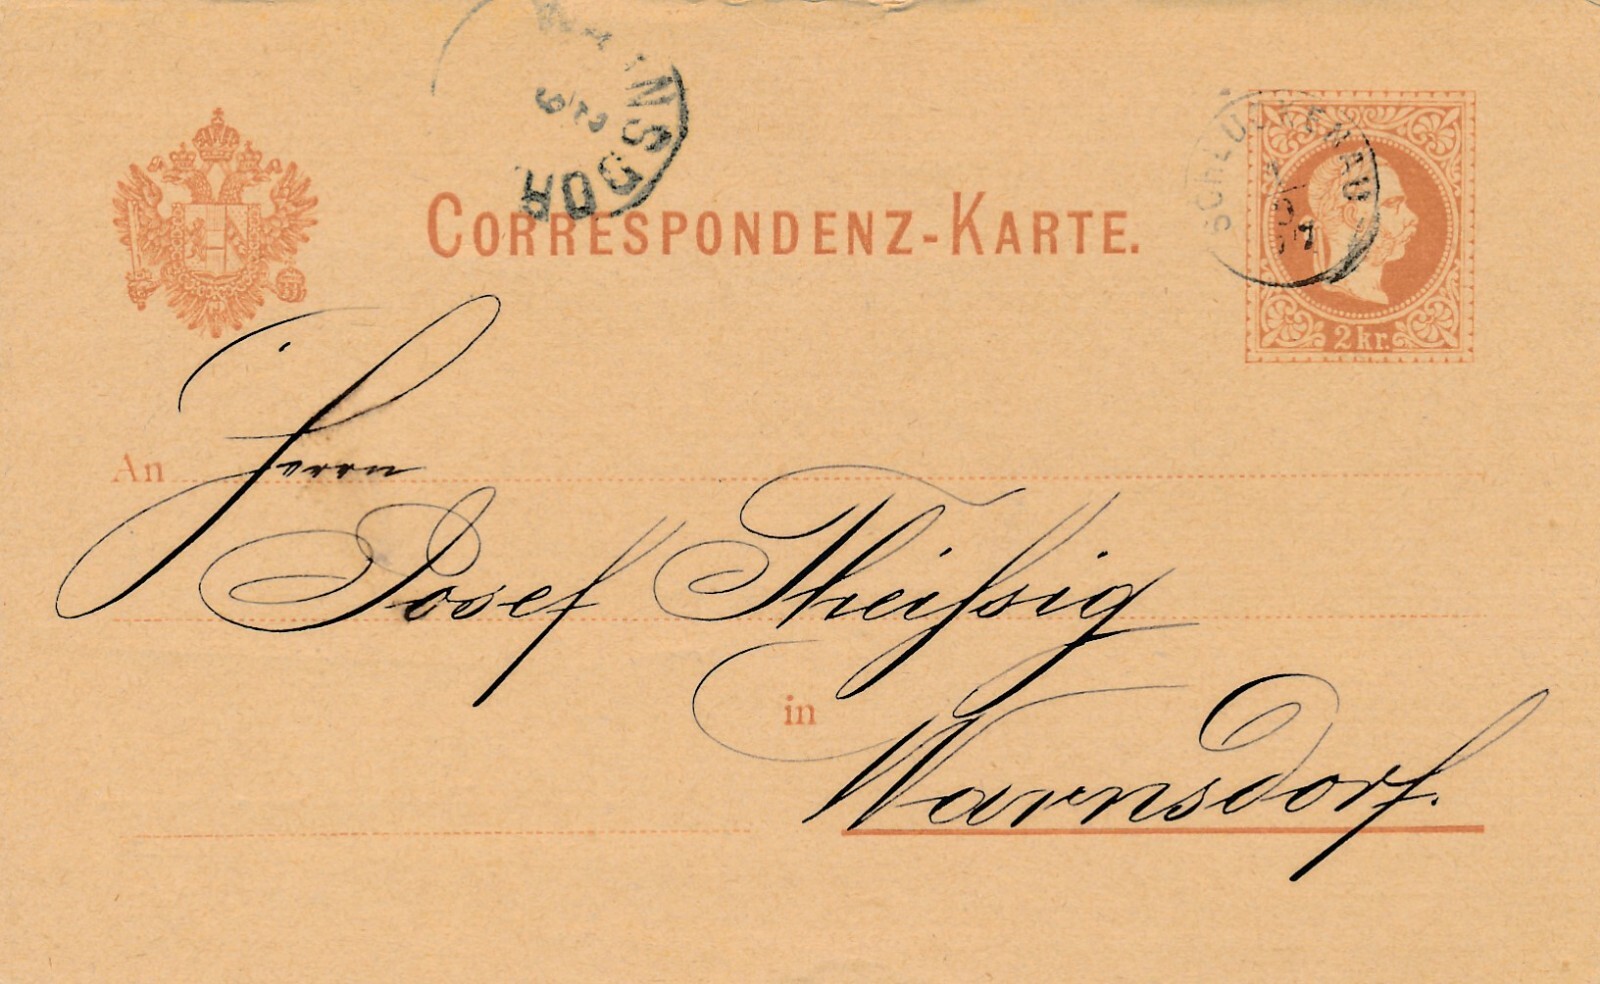 CORRESPONDENZ-KARTE.
SCHLUCKENAU
2 kr.
An Herrn
Josef Theißsig
in Warnsdorf.